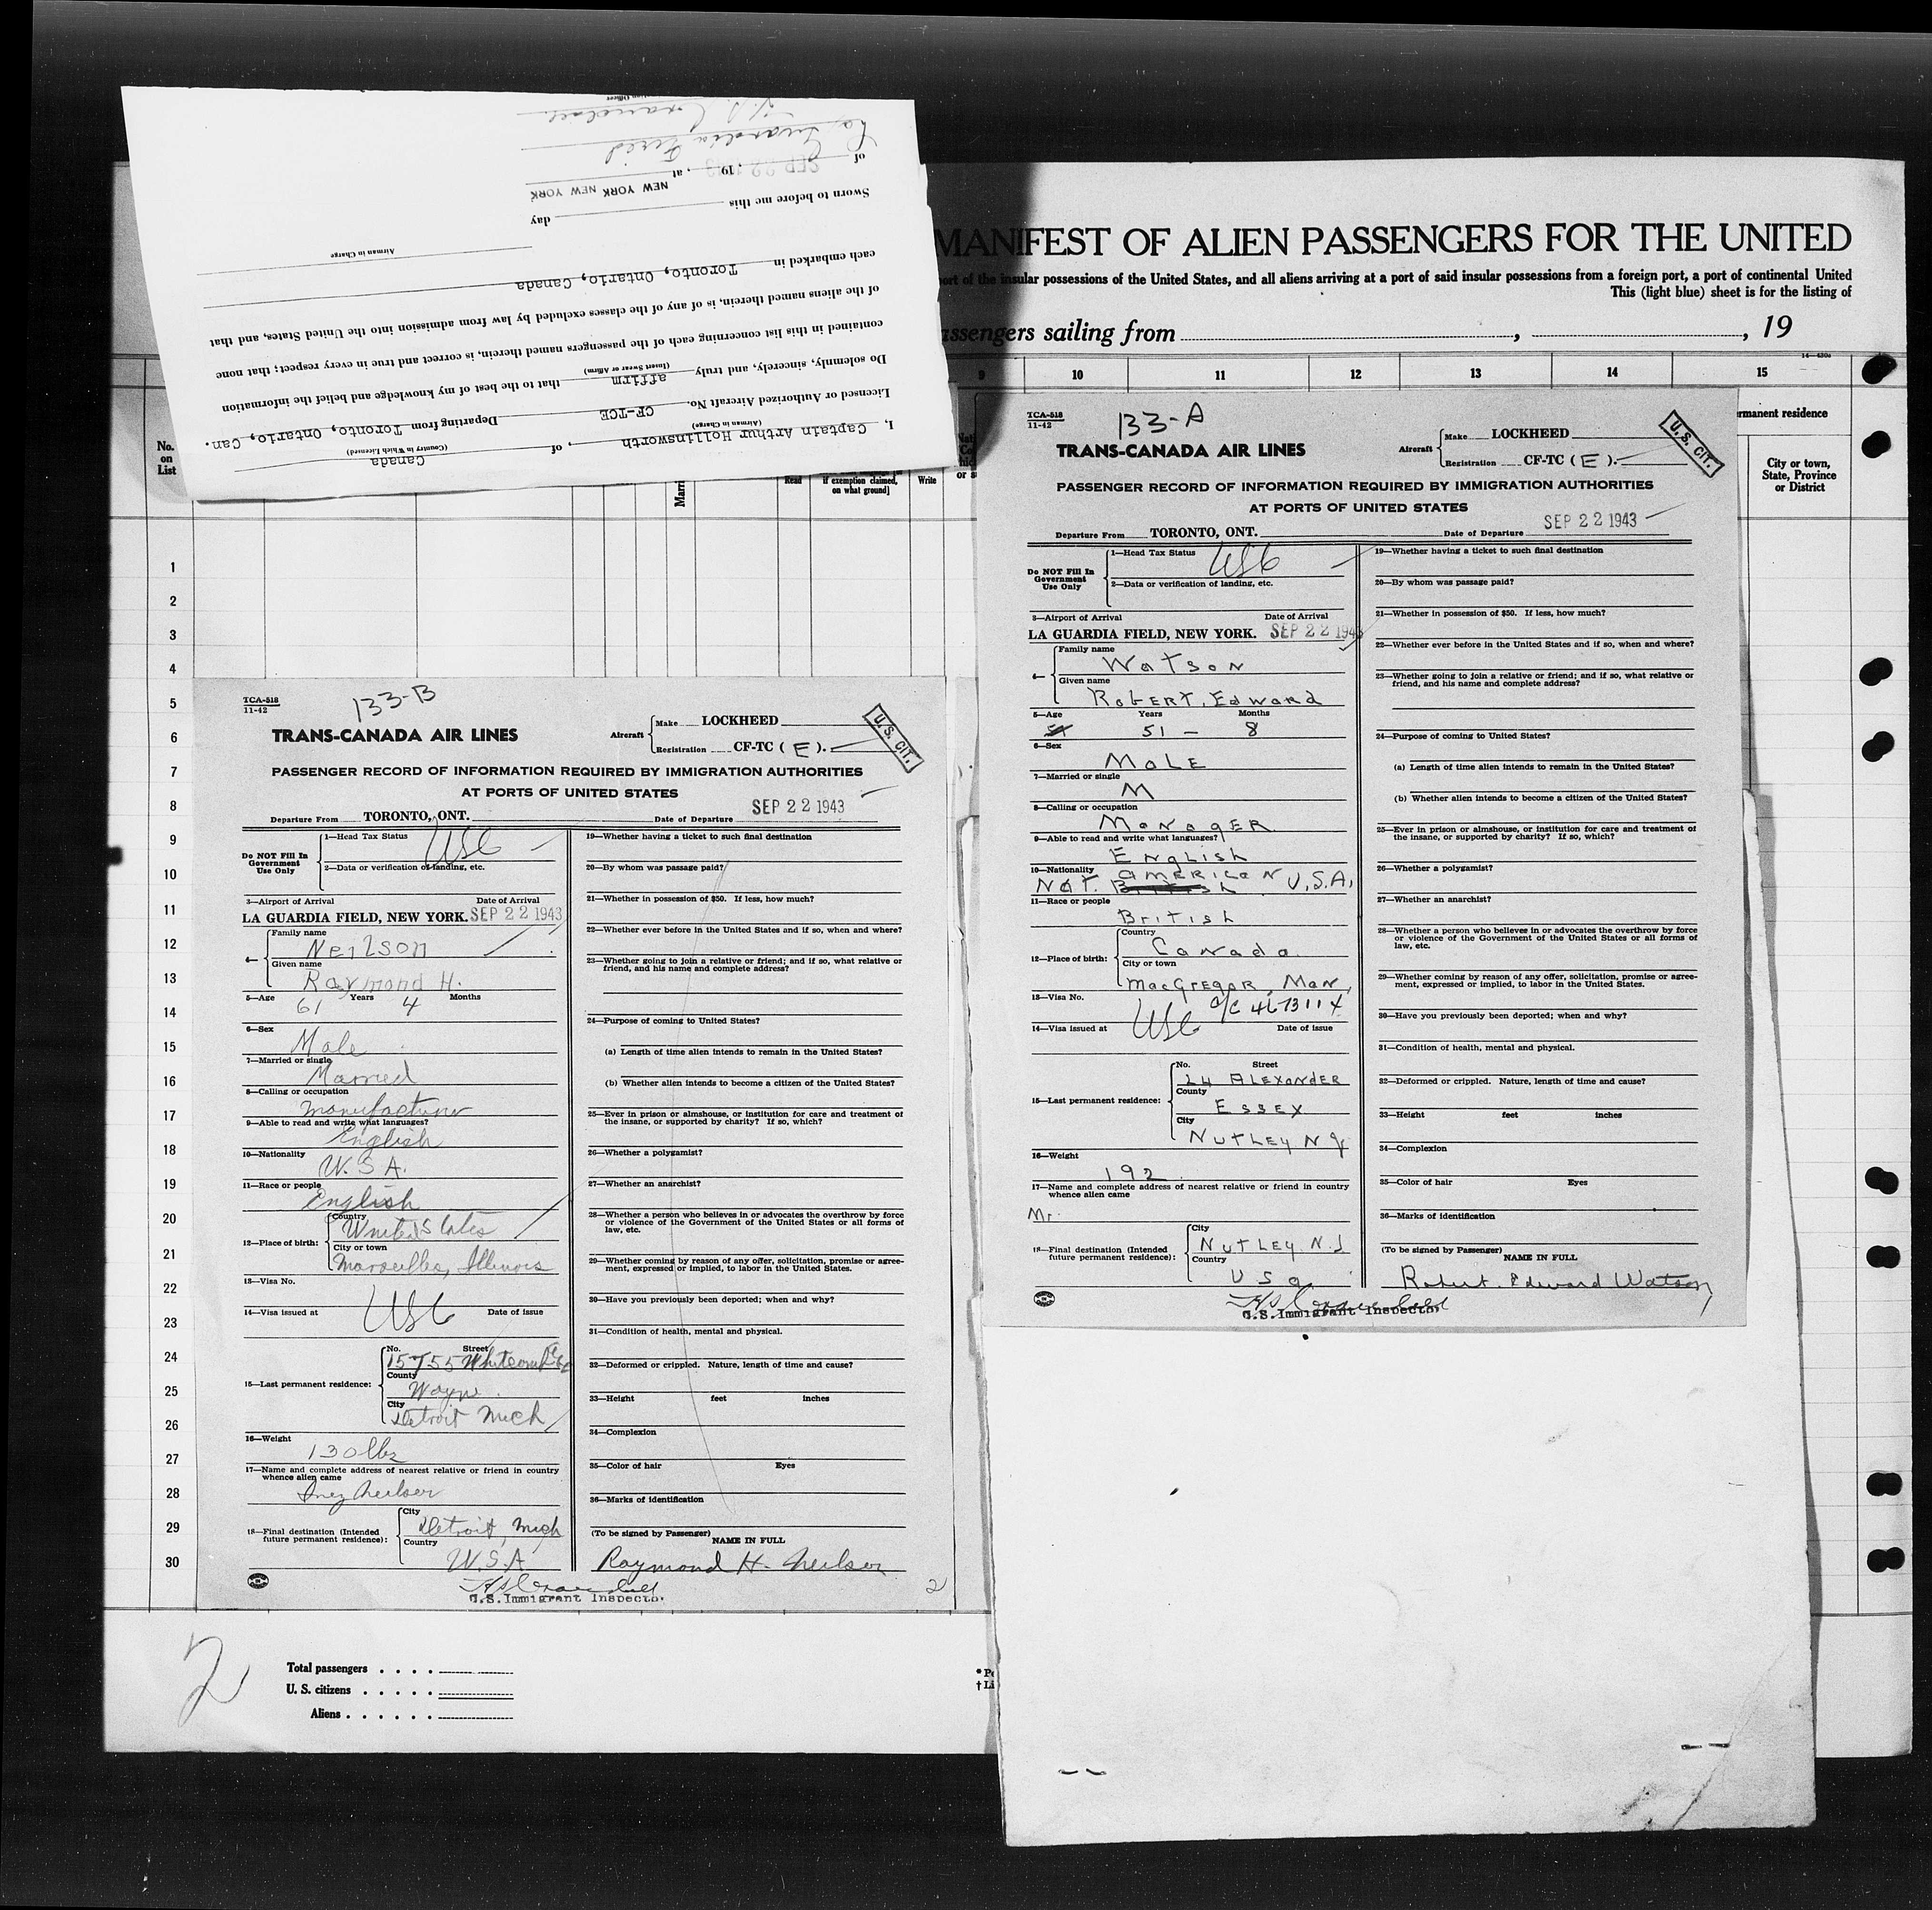 I, Captain Arthur Hollinsworth, of Canada
(Airman in Charge) (Country in Which Licensed)
Licensed or Authorized Aircraft No. CF-TCE Departing from Toronto, Ontario, Can.
Do solemnly, sincerely, and truly affirm that to the best of my knowledge and belief the information
(Insert Swear or Affirm)
contained in this list concerning each of the passengers named therein, is correct and true in every respect; that none
of the aliens named therein, is of any of the classes excluded by law from admission into the United States, and that
each embarked in Toronto, Ontario, Canada
Airman in Charge
Sworn to before me this day
NEW YORK NEW YORK
of SEP 22 1943, 19 , at
La Guardia Field
MANIFEST OF ALIEN PASSENGERS FOR THE UNITED
port of the insular possessions of the United States, and all aliens arriving at a port of said insular possessions from a foreign port, a port of continental United
This (light blue) sheet is for the listing of
assengers sailing from , , 19
9 10 11 12 13 14 15
rmanent residence
No. on List
Read
if exemption claimed, on what ground]
Write
City or town, State, Province or District
1
2
3
4
5
6
7
8
9
10
11
12
13
14
15
16
17
18
19
20
21
22
23
24
25
26
27
28
29
30
TCA-518
11-42
133-B
TRANS-CANADA AIR LINES
Aircraft
Make LOCKHEED
Registration CF-TC ( E ).
U.S. CIT.
PASSENGER RECORD OF INFORMATION REQUIRED BY IMMIGRATION AUTHORITIES
AT PORTS OF UNITED STATES
Departure From TORONTO, ONT. Date of Departure SEP 22 1943
Do NOT Fill In Government Use Only
1—Head Tax Status USC
2—Data or verification of landing, etc.
3—Airport of Arrival Date of Arrival
LA GUARDIA FIELD, NEW YORK. SEP 22 1943
4— Family name
Neilson
Given name
Raymond H.
5—Age Years Months
61 4
6—Sex
Male
7—Married or single
Married
8—Calling or occupation
Manufacturer
9—Able to read and write what languages?
English
10—Nationality
U.S.A.
11—Race or people
English
12—Place of birth:
Country
United States
City or town
Marseilles, Illinois
13—Visa No.
14—Visa issued at USC Date of issue
15—Last permanent residence:
No. Street
15755 Whitcomb
County
Wayne
City
Detroit Mich
16—Weight
130 lbs
17—Name and complete address of nearest relative or friend in country
whence alien came
Inez Neilson
18—Final destination (Intended future permanent residence):
City
Detroit, Mich
Country
U.S.A
U.S. Immigrant Inspector
19—Whether having a ticket to such final destination
20—By whom was passage paid?
21—Whether in possession of $50. If less, how much?
22—Whether ever before in the United States and if so, when and where?
23—Whether going to join a relative or friend; and if so, what relative or
friend, and his name and complete address?
24—Purpose of coming to United States?
(a) Length of time alien intends to remain in the United States?
(b) Whether alien intends to become a citizen of the United States?
25—Ever in prison or almshouse, or institution for care and treatment of
the insane, or supported by charity? If so, which?
26—Whether a polygamist?
27—Whether an anarchist?
28—Whether a person who believes in or advocates the overthrow by force
or violence of the Government of the United States or all forms of
law, etc.
29—Whether coming by reason of any offer, solicitation, promise or agree-
ment, expressed or implied, to labor in the United States.
30—Have you previously been deported; when and why?
31—Condition of health, mental and physical.
32—Deformed or crippled. Nature, length of time and cause?
33—Height feet inches
34—Complexion
35—Color of hair Eyes
36—Marks of identification
(To be signed by Passenger)
NAME IN FULL
Raymond H. Neilson
2
TCA-518
11-42
133-A
TRANS-CANADA AIR LINES
Aircraft
Make LOCKHEED
Registration CF-TC ( E ).
U.S. CIT.
PASSENGER RECORD OF INFORMATION REQUIRED BY IMMIGRATION AUTHORITIES
AT PORTS OF UNITED STATES
Departure From TORONTO, ONT. Date of Departure SEP 22 1943
Do NOT Fill In Government Use Only
1—Head Tax Status USC
2—Data or verification of landing, etc.
3—Airport of Arrival Date of Arrival
LA GUARDIA FIELD, NEW YORK. SEP 22 1943
4— Family name
Watson
Given name
Robert. Edward
5—Age Years Months
51 — 8
6—Sex
Male
7—Married or single
M
8—Calling or occupation
Manager
9—Able to read and write what languages?
English
10—Nationality
Nat. British American U.S.A.
11—Race or people
British
12—Place of birth:
Country
Canada
City or town
MacGregor, Man,
13—Visa No. C/C 4673114
14—Visa issued at USC Date of issue
15—Last permanent residence:
No. Street
24 Alexander
County
Essex
City
Nutley NJ
16—Weight
192
17—Name and complete address of nearest relative or friend in country
whence alien came
Mr.
18—Final destination (Intended future permanent residence):
City
Nutley N.J
Country
USa
U.S. Immigrant Inspector
19—Whether having a ticket to such final destination
20—By whom was passage paid?
21—Whether in possession of $50. If less, how much?
22—Whether ever before in the United States and if so, when and where?
23—Whether going to join a relative or friend; and if so, what relative or
friend, and his name and complete address?
24—Purpose of coming to United States?
(a) Length of time alien intends to remain in the United States?
(b) Whether alien intends to become a citizen of the United States?
25—Ever in prison or almshouse, or institution for care and treatment of
the insane, or supported by charity? If so, which?
26—Whether a polygamist?
27—Whether an anarchist?
28—Whether a person who believes in or advocates the overthrow by force
or violence of the Government of the United States or all forms of
law, etc.
29—Whether coming by reason of any offer, solicitation, promise or agree-
ment, expressed or implied, to labor in the United States.
30—Have you previously been deported; when and why?
31—Condition of health, mental and physical.
32—Deformed or crippled. Nature, length of time and cause?
33—Height feet inches
34—Complexion
35—Color of hair Eyes
36—Marks of identification
(To be signed by Passenger)
NAME IN FULL
Robert. Edward Watson
2
Total passengers . . . .
U. S. citizens . . . . .
Aliens . . . . . .